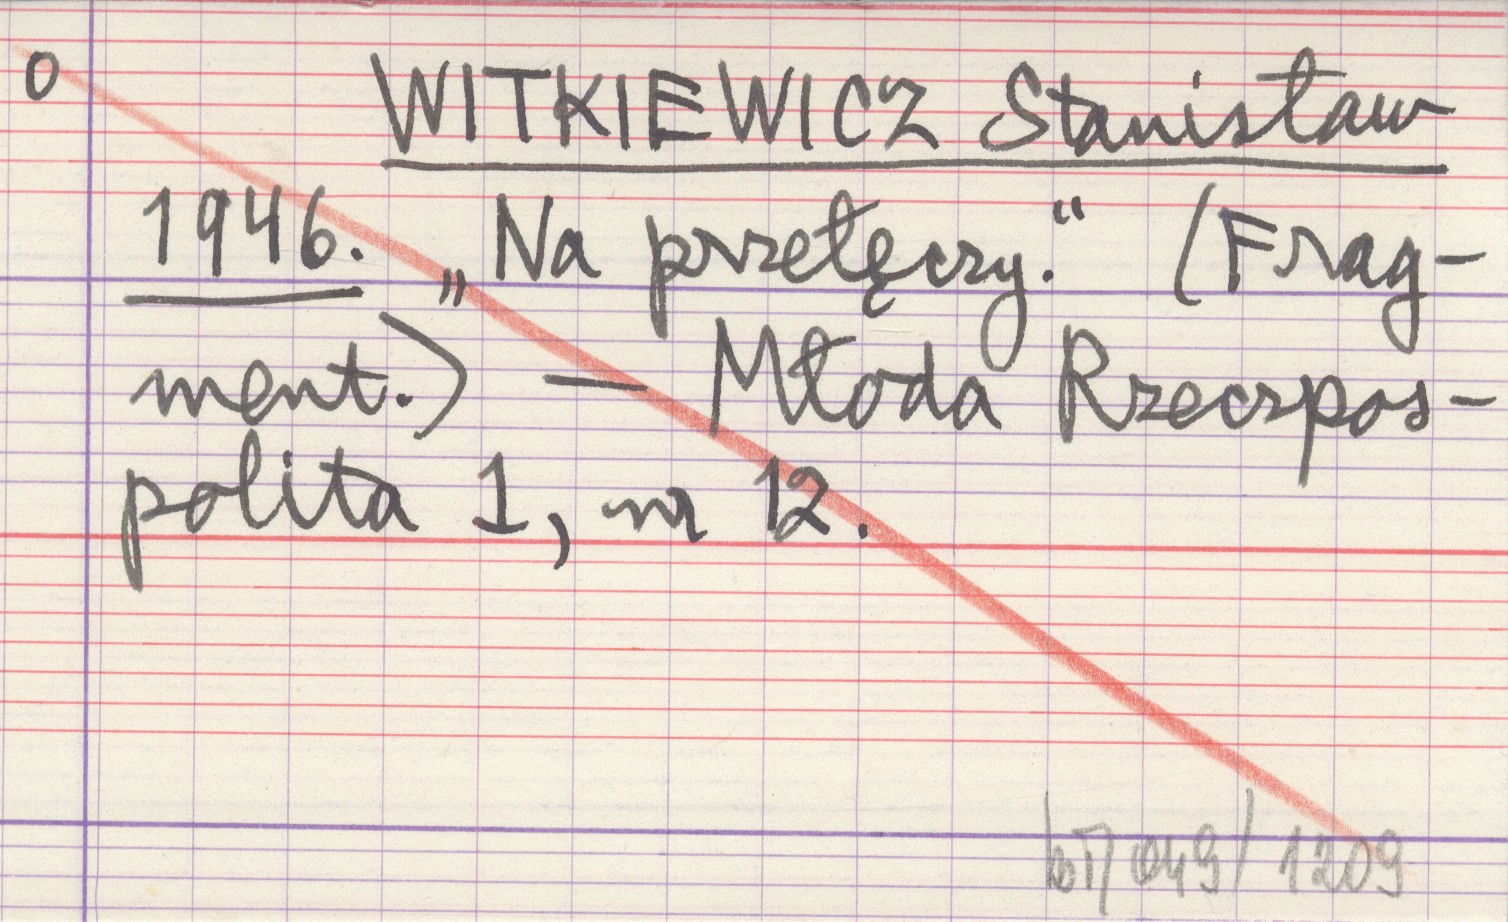 0
WITKIEWICZ Stanisław
1946. „Na przełęczy.“ (Frag-
ment.) — Młoda Rzeczpos-
polita 1, nr 12.
1209